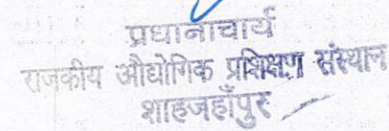 प्रधानाचार्य
राजकीय औद्योगिक प्रशिक्षण संस्थान
शाहजहाँपुर